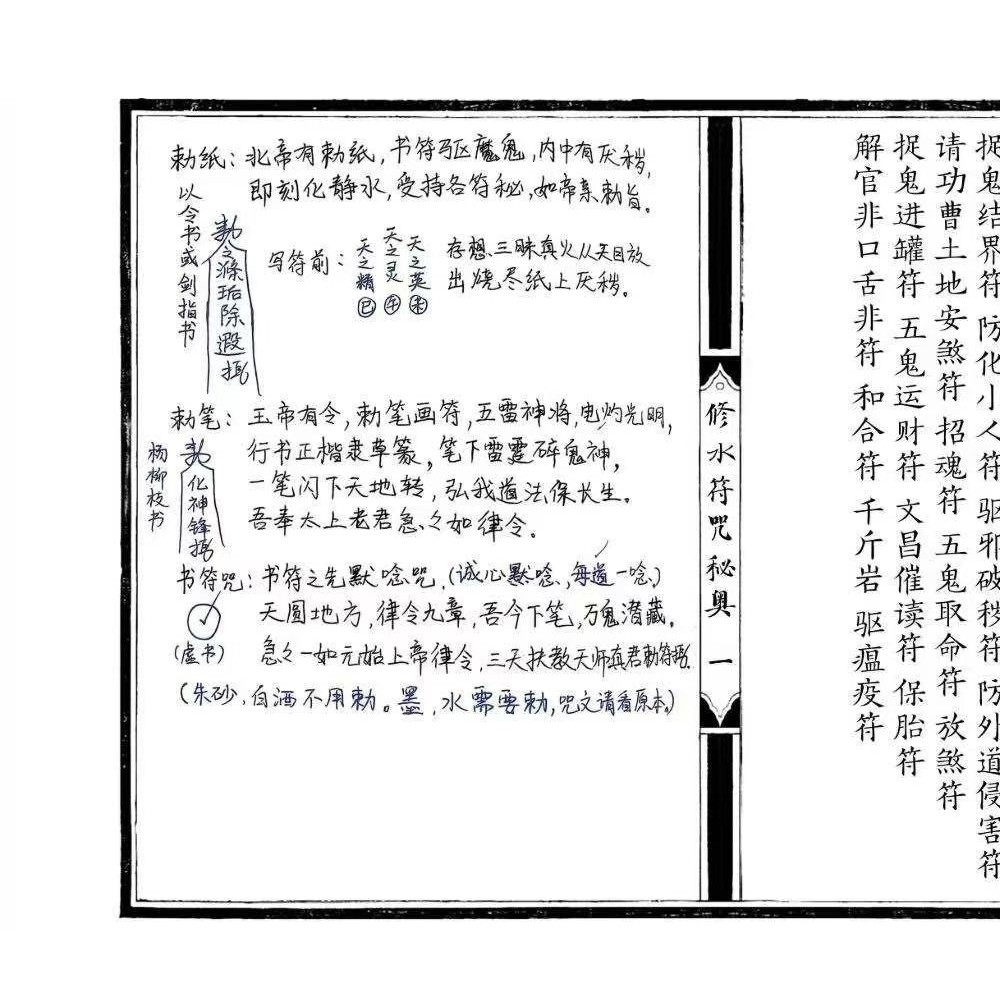 捉鬼结界符 防化小人符 驱邪破秽符 防外道侵害符
请功曹土地安煞符 招魂符 五鬼取命符 放煞符
捉鬼进罐符 五鬼运财符 文昌催读符 保胎符
解官非口舌非符 和合符 千斤岩 驱瘟疫符
修水符咒秘奥 一
勅纸：北帝有勅纸，书符驱魔鬼，内中有厌秽，
即刻化静水，受持各符秘，如帝亲勅旨。
以令书或剑指书
勅令涤垢除遐
写符前：
天之精 巳
天之灵 午
天之英 未
存想三昧真火从天目放
出烧尽纸上厌秽。
勅笔：王帝有令，勅笔画符，五雷神将，电灼光明，
行书正楷隶草篆，笔下雷霆碎鬼神，
一笔闪下天地转，弘我道法保长生。
吾奉太上老君急々如律令。
杨柳枝书
勅化神锋
书符咒：书符之先默唸咒，（诚心默唸，每道一唸）
天圆地方，律令九章，吾今下笔，万鬼潜藏。
（虚书）
急々一如元始上帝律令，三天扶教天师真君勅符
（朱砂，白酒不用勅。墨，水需要勅，咒文请看原本。）